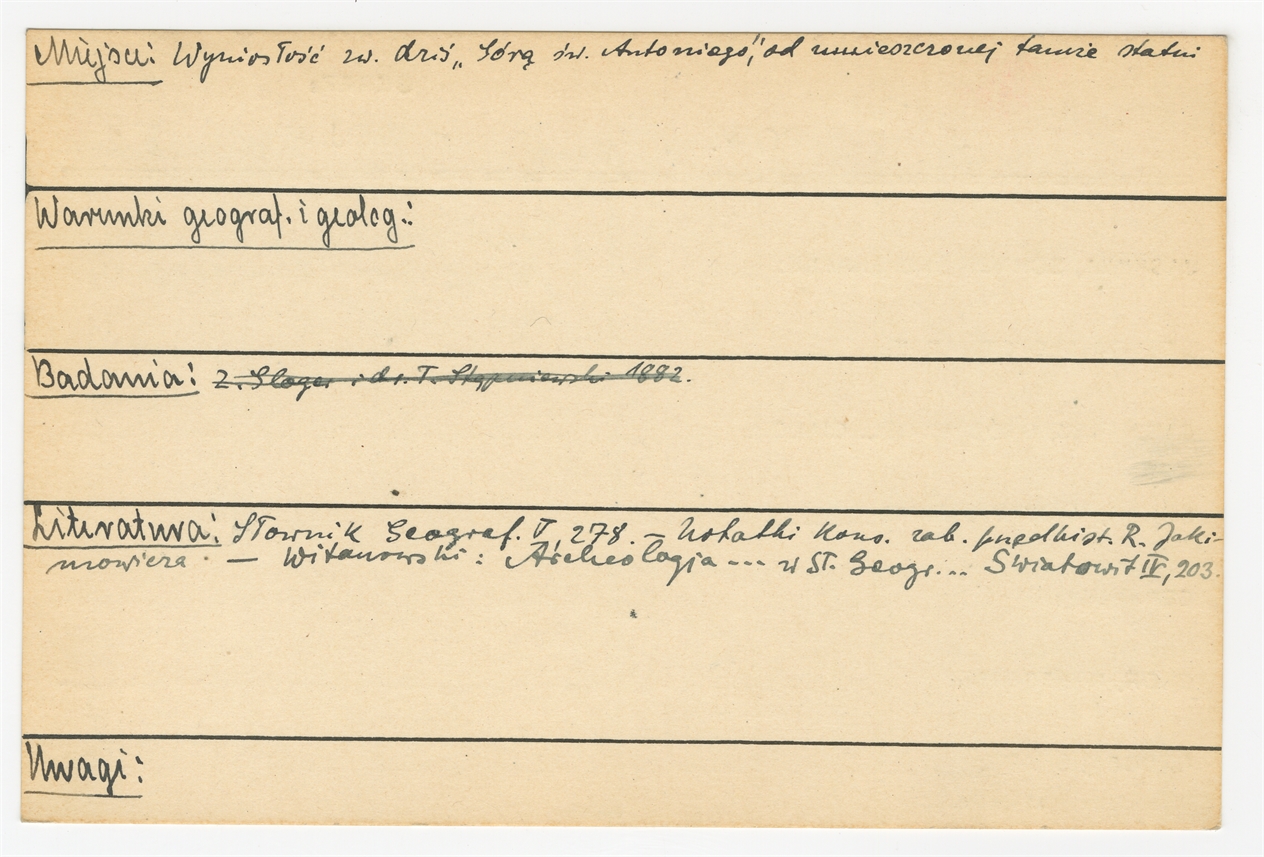 Miejsce: Wyniosłość zw. dziś „Górą św. Antoniego", od umieszczonej tamże statui
Warunki geograf. i geolog.:
Badania: Z. Gloger i dr. T. Stępniewski 1882.
Literatura: Słownik Geograf. V, 278. – Notatki Kons. zab. przedhist. R. Jaki-
mowicza. – Witanowski: Archeologja ... w Sł. Geogr... Światowit IV, 203.
Uwagi: